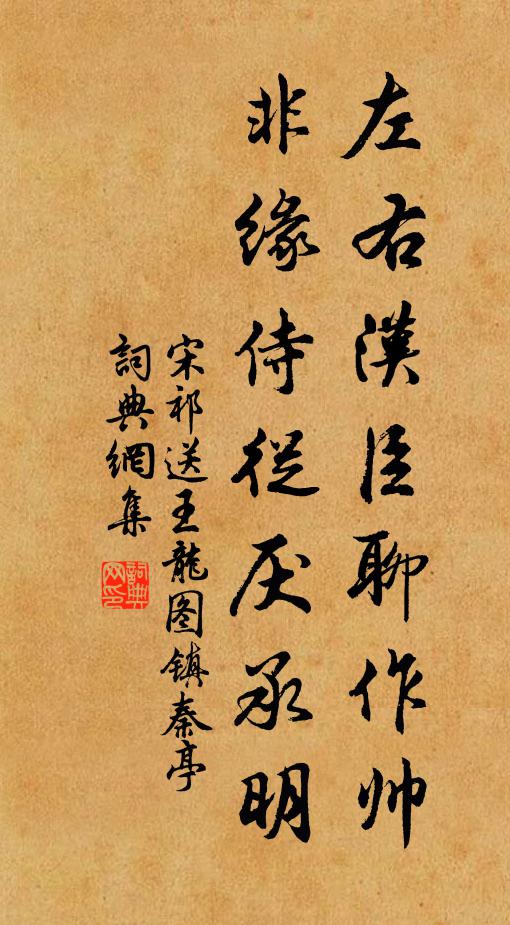 左右漢臣聊作帅
非缘侍從厌承明
宋祁送王龍图镇秦亭
詞典網集
詞典网印